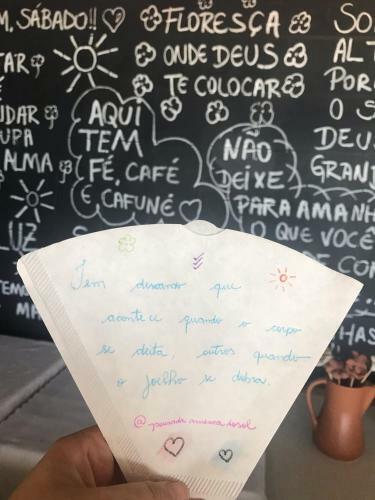 M, SÁBADO!!
FLORESÇA
ONDE DEUS
TE COLOCAR
AQUI
TEM
FÉ, CAFÉ
E, CAFUNÉ
NÃO
DEIXE
PARA AMANH
O QUE VOCÊ
SO
AL T
POR
O S
DEUS
GRAND
TAR
UDAR
UPA
ALMA
LUZ
Tem descanso que
acontece quando o corpo
se deita, outros quando
o joelho se dobra.